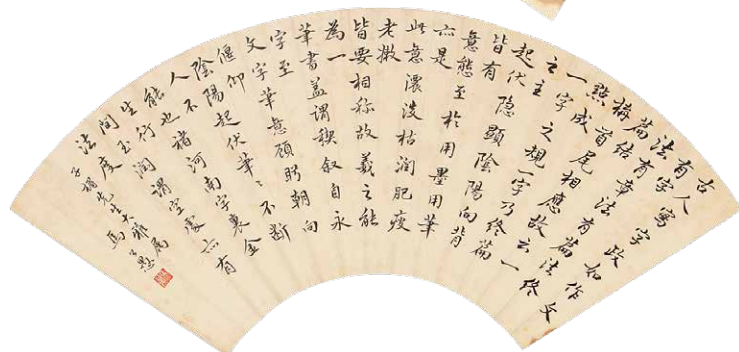 古人寫字政如作文
有字
法有章法有篇法終
篇結
構首尾相應故云一
點成
一字之規一字乃終篇
之主
起伏隱顯陰陽向背
皆有
意態至於用墨用筆
亦是
此意濃淡枯潤肥瘦
老嫩
皆要相稱故羲之能
為一
筆書蓋謂禊叙自永
字至
文字筆意顧盼朝向
偃仰
陰陽起伏筆〻不斷
人不
能也褚河南字裏金
生行
間玉潤謂空處亦有
法度
子楣先生大雅屬
馬